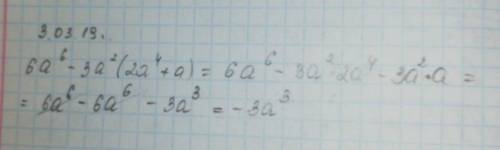 3.03.19.
6a⁶ - 3a²(2a⁴ + a) = 6a⁶ - 3a² · 2a⁴ - 3a² · a =
= 6a⁶ - 6a⁶ - 3a³ = -3a³